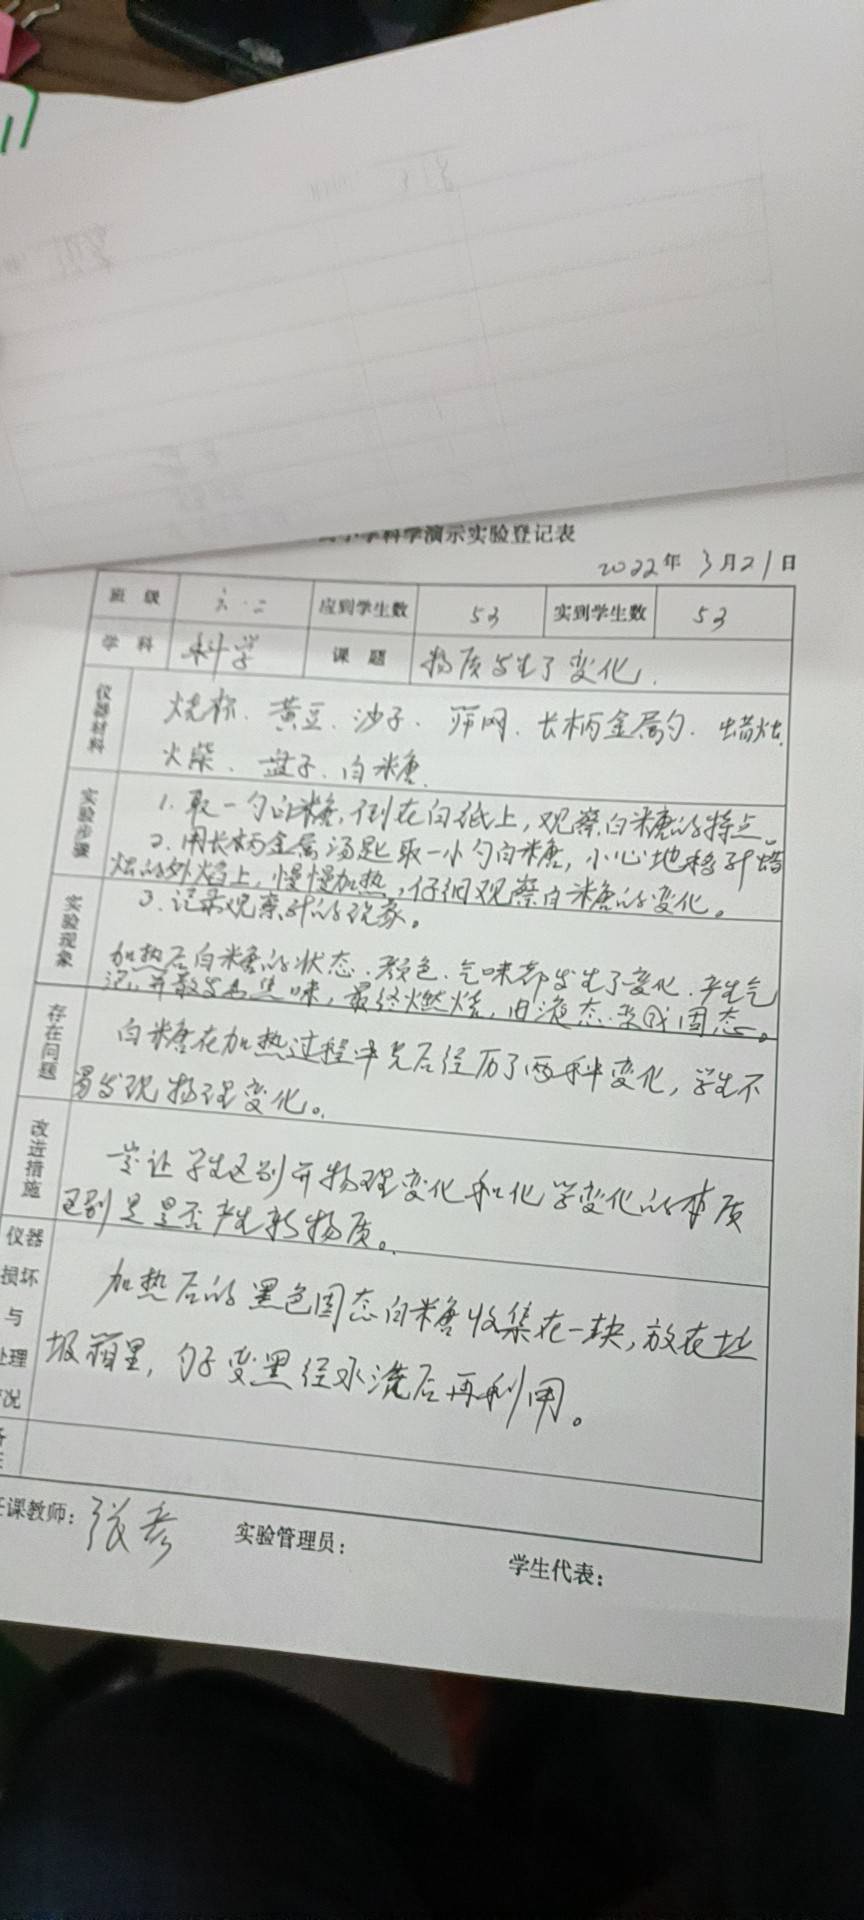 小学科学演示实验登记表
2022年3月21日
班 级 六.二 应到学生数 53 实到学生数 53
学 科 科学 课 题 物质发生了变化.
仪器材料
烧杯、黄豆、沙子、筛网、长柄金属勺、蜡烛、
火柴、盘子、白米糖.
实验步骤
1.取一勺白米糖,倒在白纸上,观察白米糖的特点。
2.用长柄金属汤匙取一小勺白米糖,小心地移到蜡
烛的外焰上,慢慢加热,仔细观察白米糖的变化。
3.记录观察到的现象。
实验现象
加热后白米糖的状态、颜色、气味都发生了变化、产生气
泡,并散发出焦味,最终燃烧,由液态变成固态。
存在问题
白米糖在加热过程中先后经历了两种变化,学生不
易发现物理变化。
改进措施
尝让学生区别开物理变化和化学变化的本质
区别是是否产生新物质。
仪器
损坏
与
处理
情况
加热后的黑色固态白米糖收集在一块,放在垃
圾箱里,勺子变黑经水洗后再利用。
任课教师: 张 实验管理员: 学生代表: